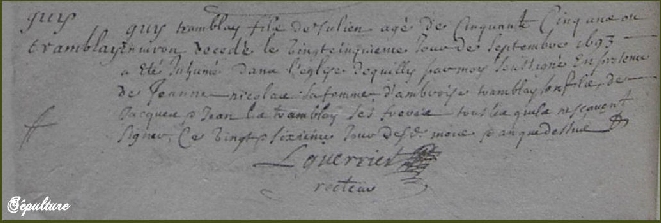 guy
tramblay
guy tramblay fils de Julien agé de Cinquante Cinq ans ou
environ decedé le vingt cinquieme jour de septembre 1693
a eté Inhumé dans l'eglise de quilly par moy soussigné En presence
de Jeanne nicolas sa femme, d'ambroise tramblay son fils, de
Jacques & Jean tramblay ses freres tous lesquels ne scavent
signer, Ce vingt & sixieme jour desd. mois & an que dessus
Lguerriet
recteur
Sépulture